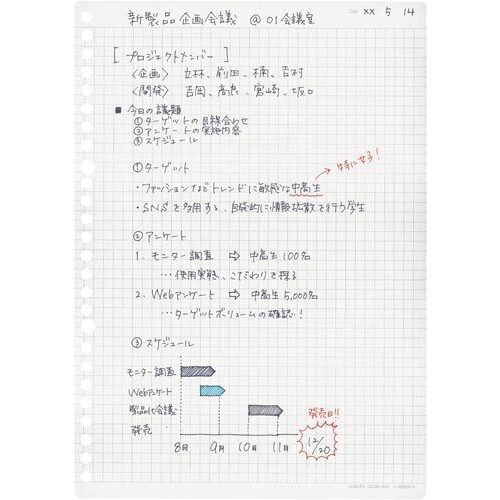 新製品企画会議 @01会議室
XX 5 14
[プロジェクトメンバー]
〈企画〉 立林、前田、楠、吉村
〈開発〉 吉岡、高惠、宮崎、坂口
■ 今日の議題
①ターゲットの目線合わせ
②アンケートの実施内容
③スケジュール
①ターゲット
特に女子!
・ファッションなどトレンドに敏感な中高生
・SNSを多用する、自発的に情報拡散を行う学生
②アンケート
1. モニター調査 ⇨ 中高生100名
…使用実態、こだわりを探る
2. Webアンケート ⇨ 中高生5,000名
…ターゲットボリュームの確認!
③スケジュール
モニター調査
Webアンケート
製品化会議
発売
発売日!!
12/20
8月 9月 10月 11月